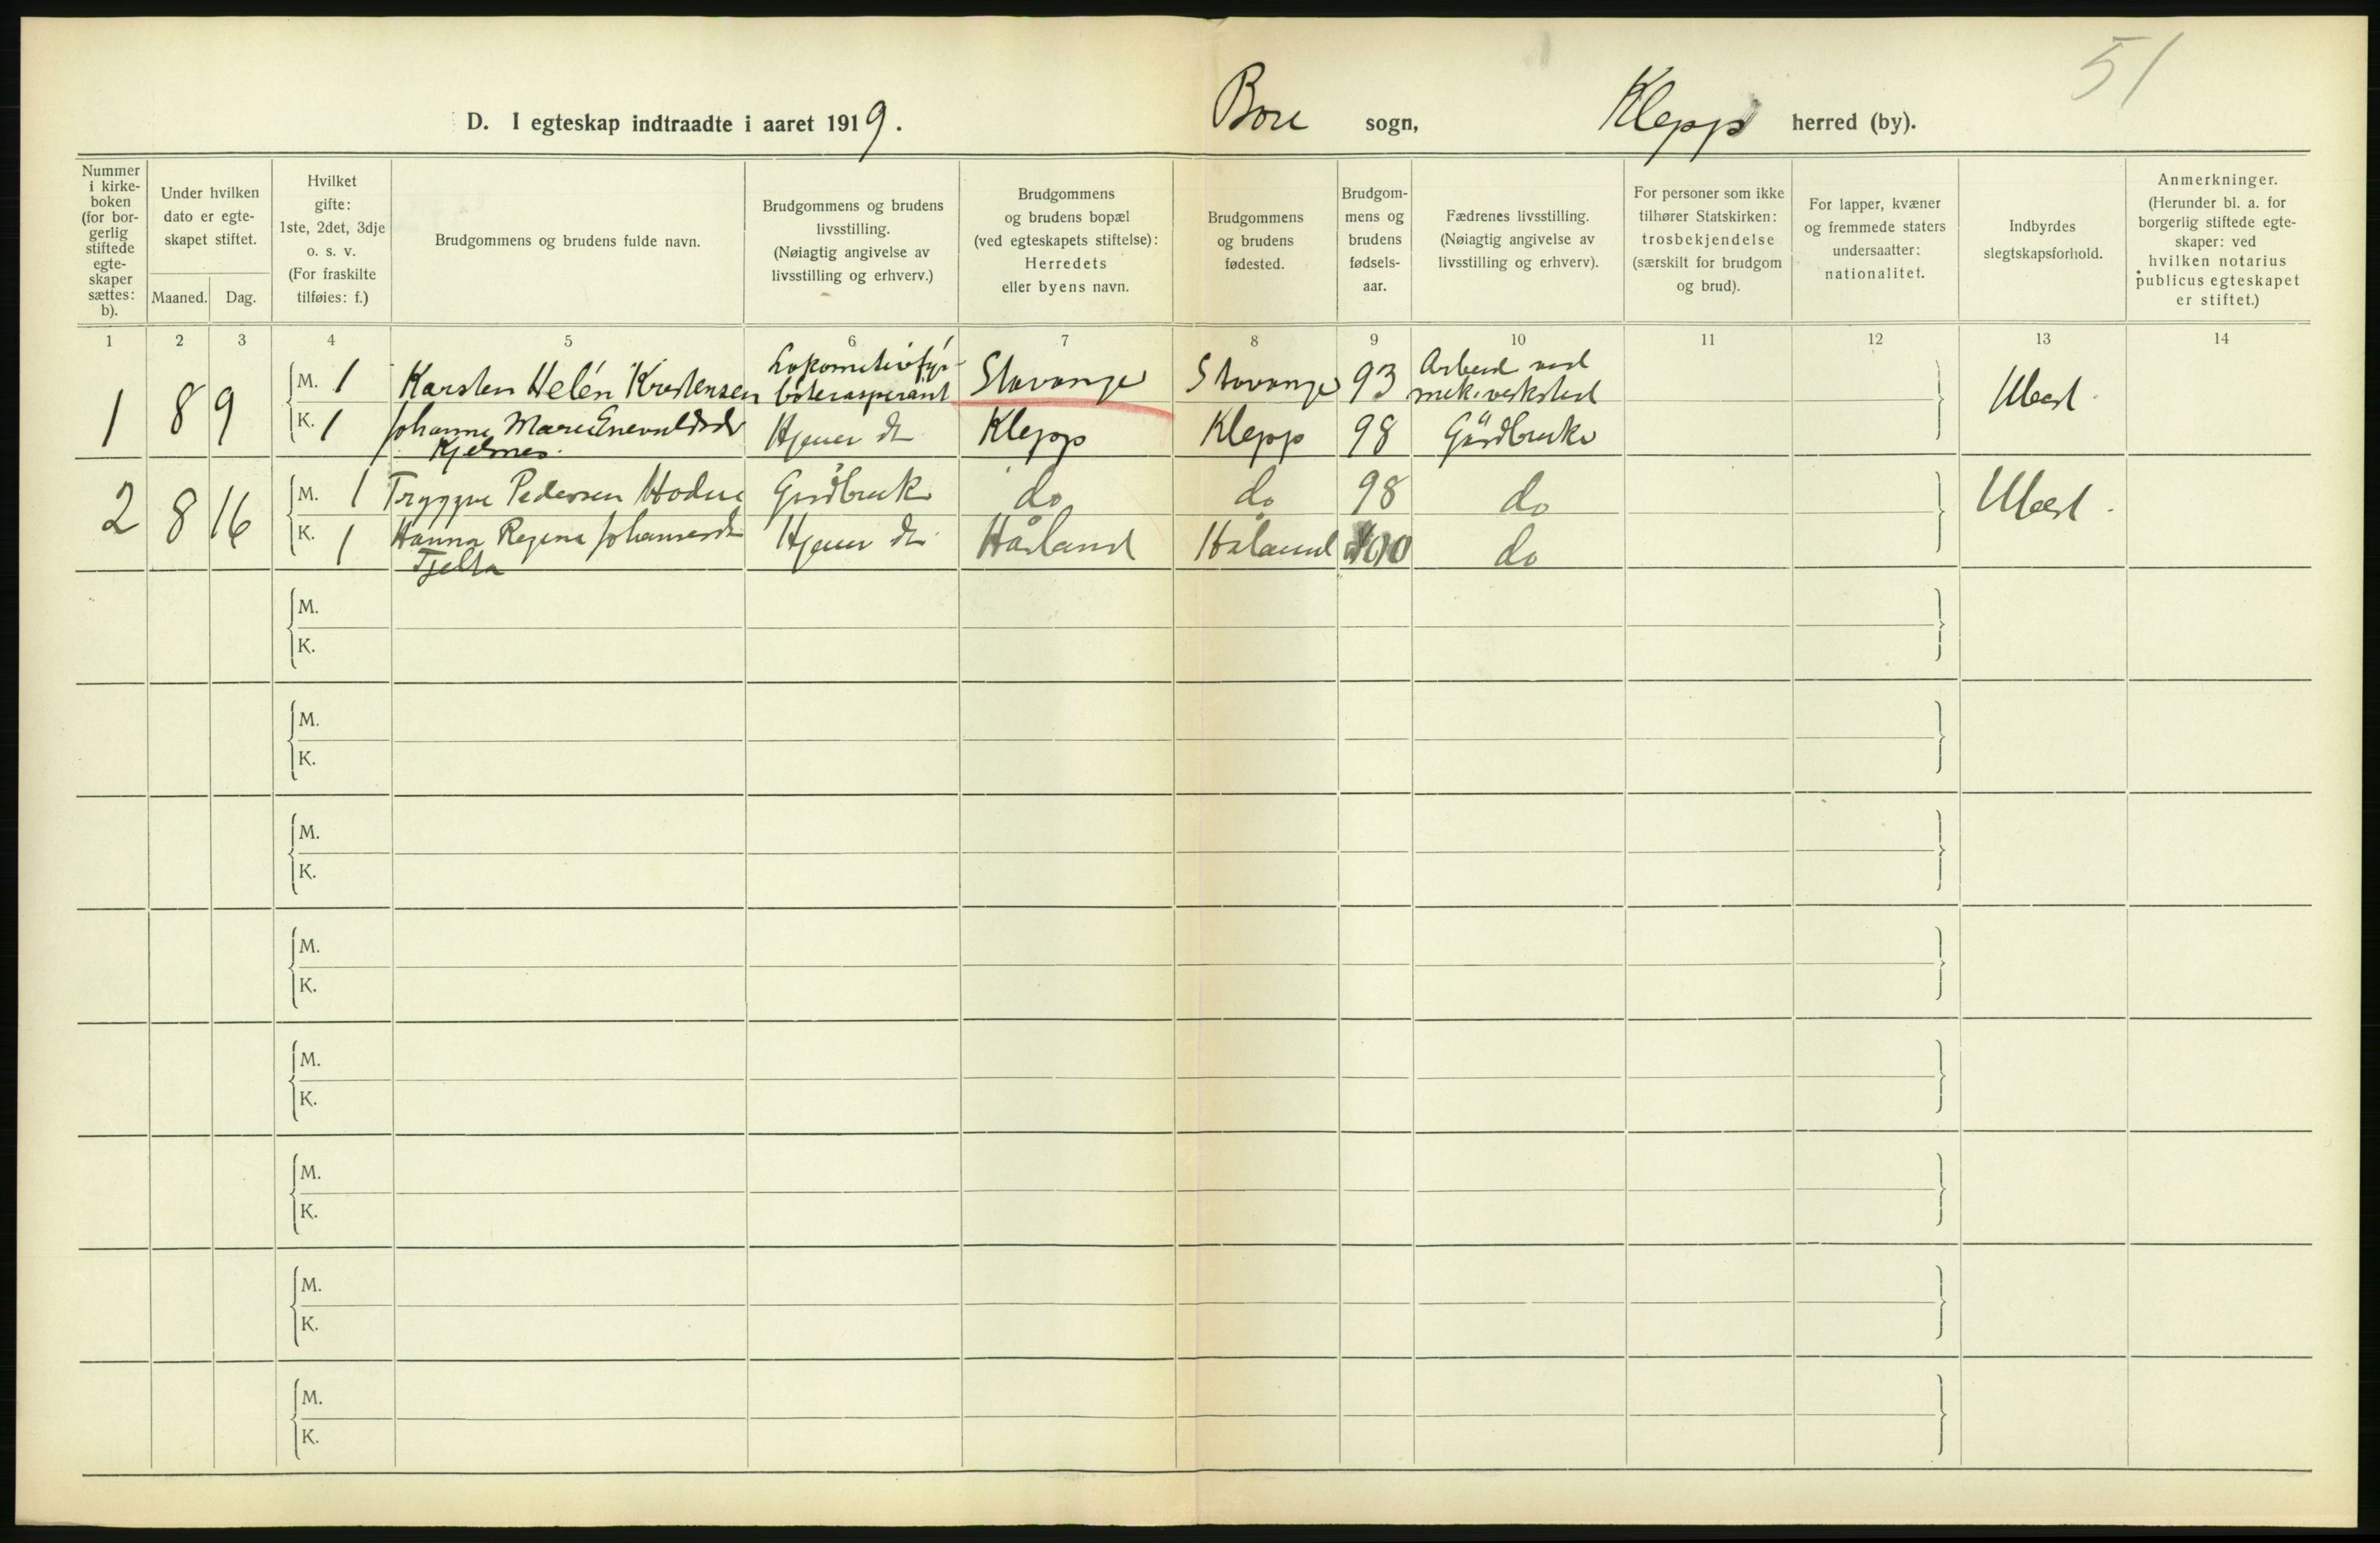 51
D. I egteskap indtraadte i aaret 1919. Bore sogn, Klepp herred (by).
Nummer i kirke-boken (for bor-gerlig stiftede egte-skaper sættes: b).
Under hvilken dato er egte-skapet stiftet.
Maaned. Dag.
Hvilket gifte: 1ste, 2det, 3dje o. s. v. (For fraskilte tilføies: f.)
Brudgommens og brudens fulde navn.
Brudgommens og brudens livsstilling. (Nøiagtig angivelse av livsstilling og erhverv.)
Brudgommens og brudens bopæl (ved egteskapets stiftelse): Herredets eller byens navn.
Brudgommens og brudens fødested.
Brudgom-mens og brudens fødsels-aar.
Fædrenes livsstilling. (Nøiagtig angivelse av livsstilling og erhverv).
For personer som ikke tilhører Statskirken: trosbekjendelse (særskilt for brudgom og brud).
For lapper, kvæner og fremmede staters undersaatter: nationalitet.
Indbyrdes slegtskapsforhold.
Anmerkninger. (Herunder bl. a. for borgerlig stiftede egte-skaper: ved hvilken notarius publicus egteskapet er stiftet.)
1 2 3 4 5 6 7 8 9 10 11 12 13 14
1 8 9 M. 1 Karsten Helén Kristensen Lokomotivfyr-bøteraspirant Stavanger Stavanger 93 Arbeid ved mek. verksted Ubesl.
K. 1 Johanne Marie Enevaldsdr Kjelnes. Hjeme dtr Klepp Klepp 98 Gårdbruker
2 8 16 M. 1 Tryggve Pedersen Hodne Gårdbruker do do 98 do Ubesl.
K. 1 Hanna Regine Johannesdtr Tjelta Hjeme dtr Håland Håland 00 do
M.
K.
M.
K.
M.
K.
M.
K.
M.
K.
M.
K.
M.
K.
M.
K.